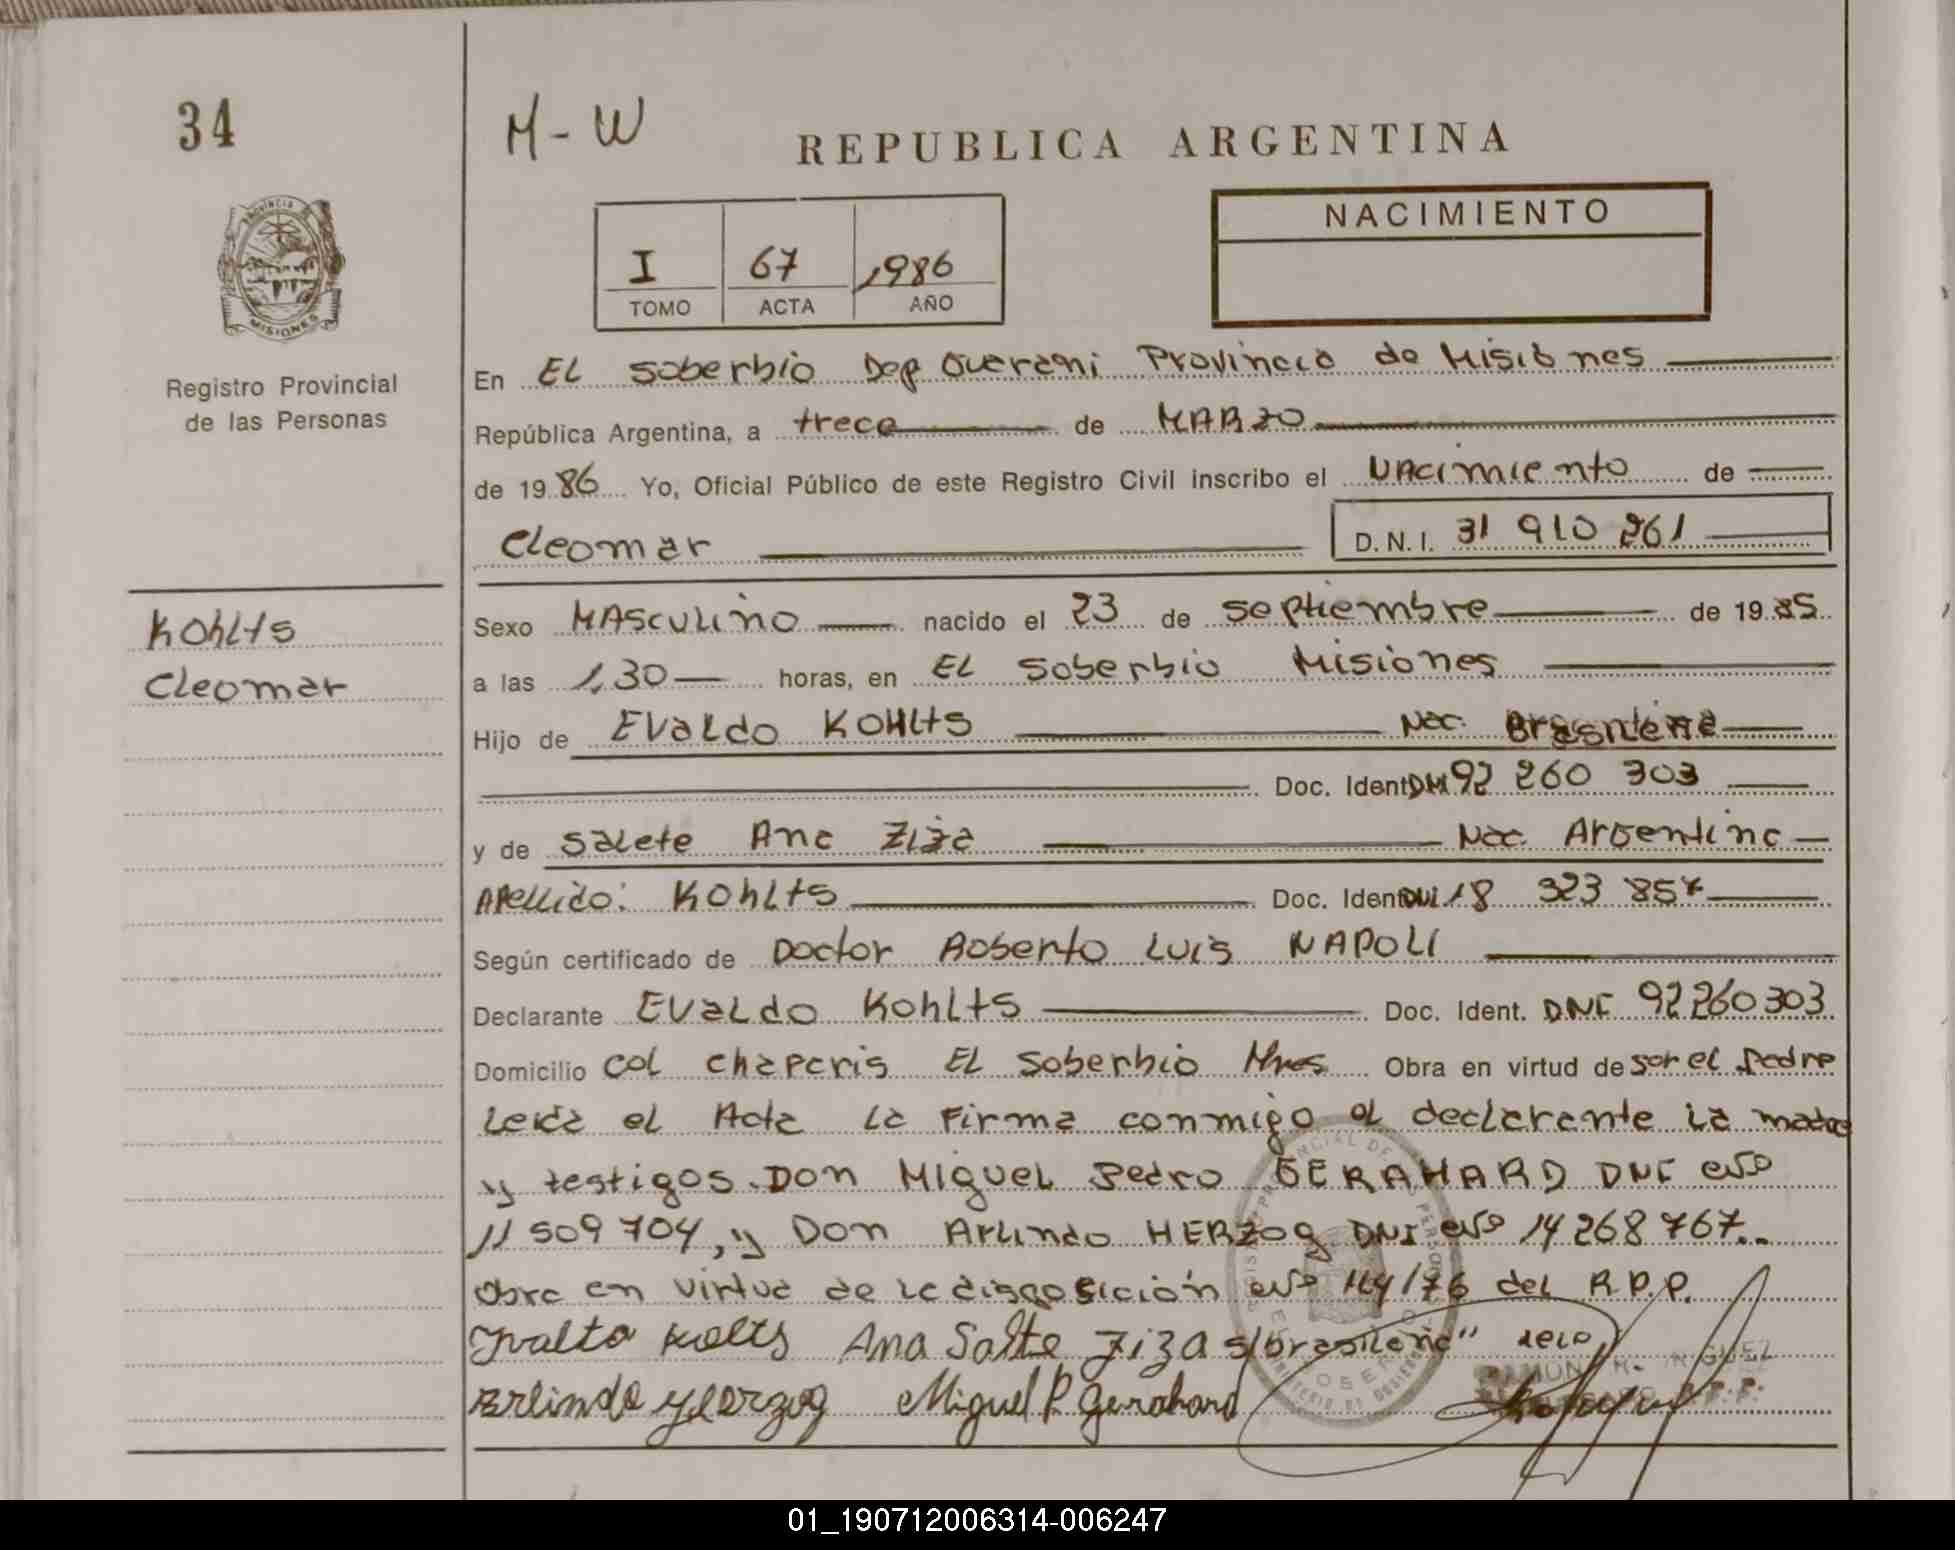 34
M - W
REPUBLICA ARGENTINA
PROVINCIA DE
MISIONES
Registro Provincial
de las Personas
I 67 1986
TOMO ACTA AÑO
NACIMIENTO
En EL Soberbio Dep Guarani Provincia de Misiones
República Argentina, a trece de MARZO
de 1986 Yo, Oficial Público de este Registro Civil inscribo el Nacimiento de
Cleomar D.N.I. 31 910 261
Kohlts
Cleomar
Sexo MASculino nacido el 23 de septiembre de 1985
a las 1,30 horas, en EL Soberbio Misiones
Hijo de EVALdo KOHLts Nac.
Doc. Ident DNI 92 260 303
y de Salete Ana Ziza Nac. Argentina
Apellido: Kohlts Doc. Ident DNI 18 323 857
Según certificado de Doctor Roberto Luis NAPOLI
Declarante EVALdo Kohlts Doc. Ident. DNI 92260303
Domicilio COL chaparis EL Soberbio Mnes Obra en virtud de ser el padre
Leida el Acta la Firma conmigo el declarante la madre
y testigos. Don Miguel Pedro GERAHARD DNI Nº
11 509 704, y Don Arlindo HERZOg DNI Nº 14 268 767..
Obra en virtud de la disposición Nº 114/76 del R.P.P.
Ivalto Kolts Ana Salte Ziza s/brasileña" vale
Erlindo Herzog Miguel P. Gerahard
01_190712006314-006247